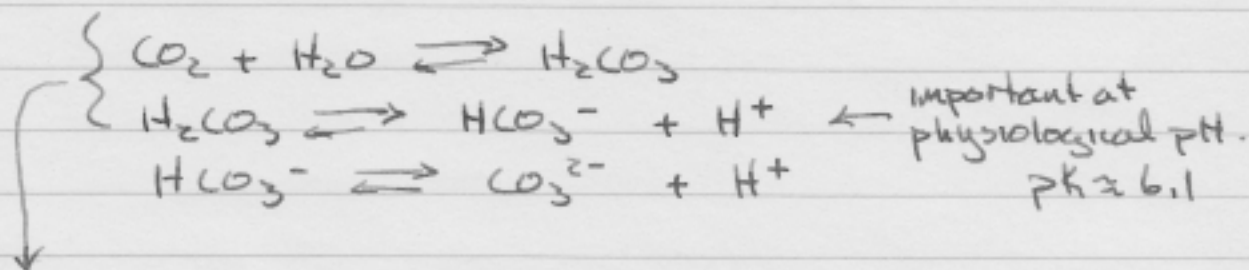 CO₂ + H₂O ⇌ H₂CO₃
H₂CO₃ ⇌ HCO₃⁻ + H⁺ ← important at
physiological pH.
HCO₃⁻ ⇌ CO₃²⁻ + H⁺ pK ≈ 6.1